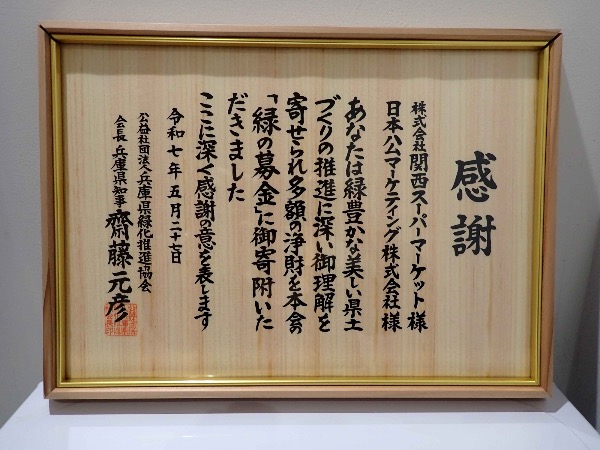 感謝
株式会社関西スーパーマーケット様
日本ハムマーケティング株式会社様
あなたは緑豊かな美しい県土
づくりの推進に深い御理解を
寄せられ多額の浄財を本会の
「緑の募金」に御寄附いた
だきました
ここに深く感謝の意を表します
令和七年五月二十七日
公益社団法人兵庫県緑化推進協会
会長兵庫県知事齋藤元彦